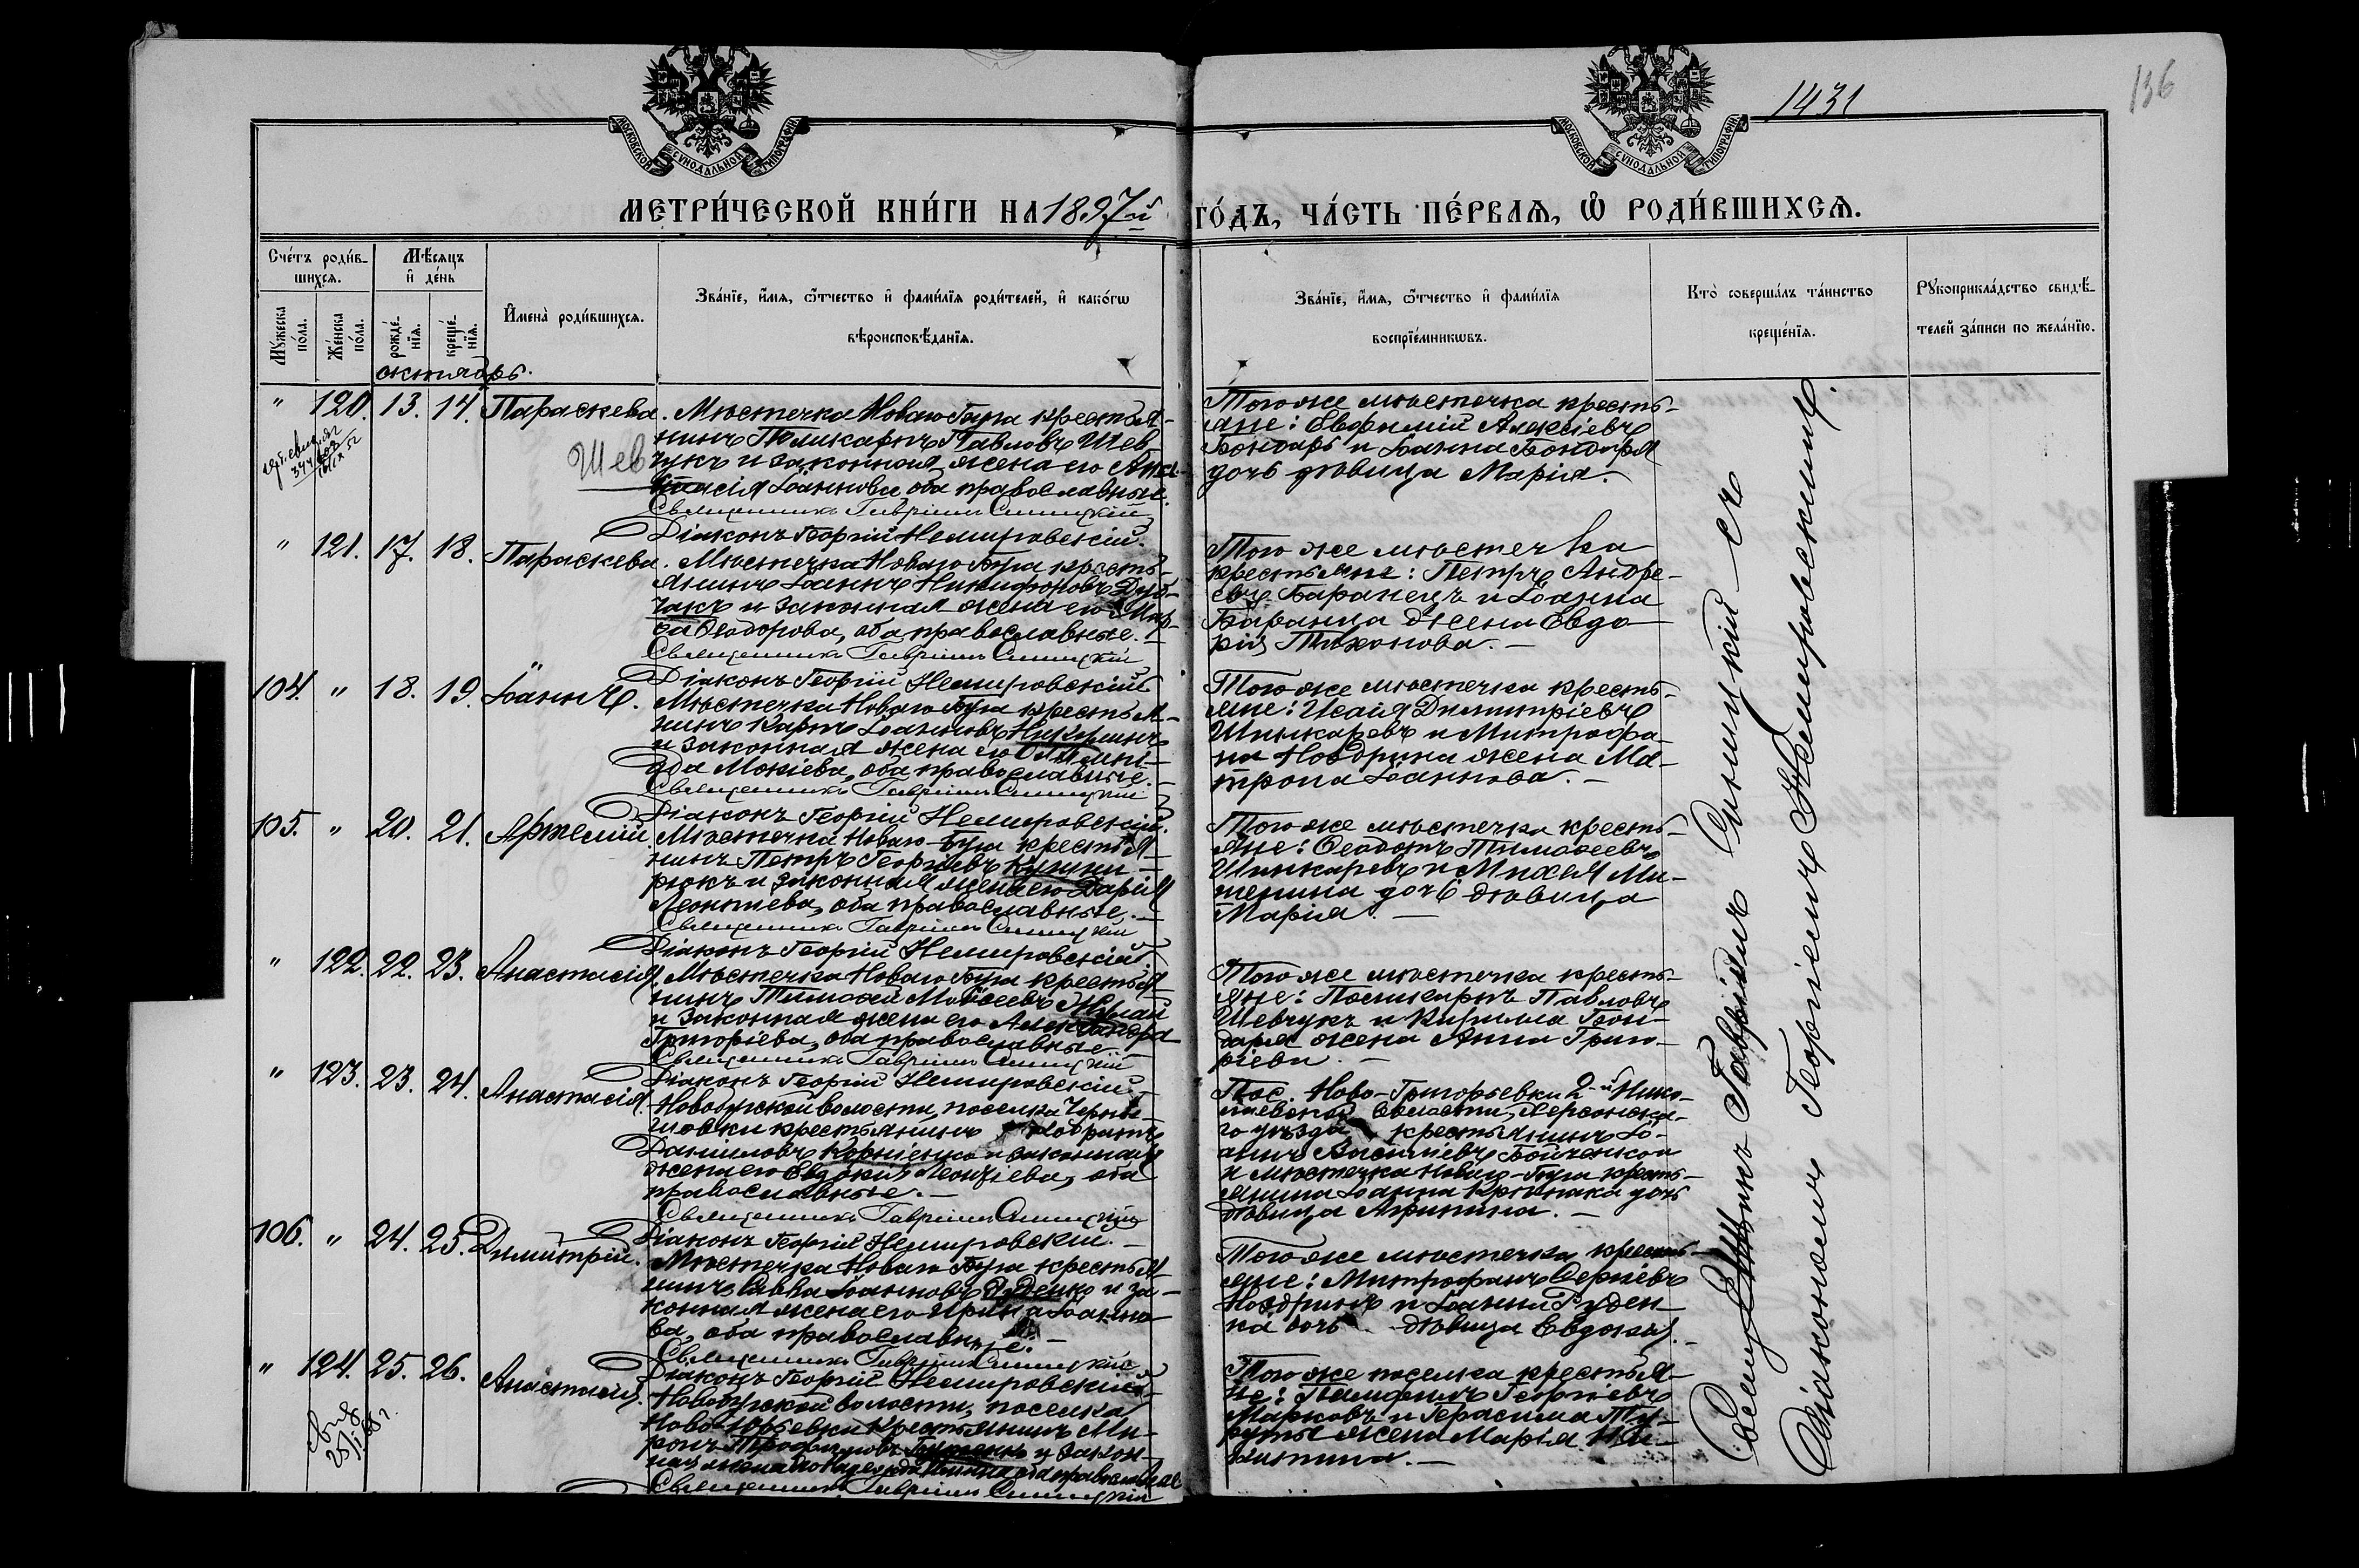 136
1431
МОСКОВСКОЙ СѴНОДАЛЬНОЙ ТИПОГРАФІИ
МОСКОВСКОЙ СѴНОДАЛЬНОЙ ТИПОГРАФІИ
МЕТРИ́ЧЕСКОЙ КНИ́ГИ НА 1897й ГО́ДЪ, ЧА́СТЬ ПЕ́РВАЯ, Ѡ РОДИ́ВШИХСЯ.
Сче́тъ роди́в-
шихся.
Мѣсяцъ
и де́нь
Му́жеска по́ла.
Же́нска по́ла.
рожде́-
нія.
креще́-
нія.
Имена̀ роди́вшихся.
Зва́ніе, и́мя, ѻ́тчество и фами́лія роди́телей, и како́гѡ
вѣроисповѣ́данія.
Зва́ніе, и́мя, ѻ́тчество и фами́лія
воспріе́мникѡвъ.
Кто̀ соверша́лъ та́инство
креще́нія.
Рукоприкла́дство свидѣ́-
телей за́писи по жела́нію.
октябрь.
" 120. 13. 14. Параскева.
Мѣстечка Новаго Буга крестья-
нинъ Поликарпъ Павловъ Шев
чукъ и законная жена его Ана-
стасія Іоаннова, оба православные.
Шев
Священникъ Гавріилъ Синицкій
Діаконъ Георгій Немировскій.
Того же мѣстечка кресть-
яне: Евфимій Алексіевъ
Бондарь и Іоанна Бондаря
дочь дѣвица Марія.
" 121. 17. 18. Параскева.
Мѣстечка Новаго Буга кресть-
янинъ Іоаннъ Никифоровъ Дуд-
чакъ и законная жена его Мар-
Ѳеодорова, оба православные.
Священникъ Гавріилъ Синицкій
Діаконъ Георгій Немировскій
Того же мѣстечка
крестьяне: Петръ Андре-
евъ Баранецъ и Іоанна
Баранца жена Евдо-
кія Тихонова.
104. " 18. 19. Іоаннъ.
Мѣстечка Новаго Буга крестья-
нинъ Карпъ Іоанновъ
и законная жена его Олимпі-
ада Мокіева, оба православные.
Священникъ Гавріилъ Синицкій
Діаконъ Георгій Немировскій.
Того же мѣстечка кресть-
яне: Исаія Димитріевъ
Шинкаревъ и Митрофа-
на Ноздрина жена Ма-
трона Іоаннова.
105. " 20. 21. Артемій
Мѣстечка Новаго-Буга крестья-
нинъ Петръ Георгіевъ
рюкъ и законная жена его Дарія
Леонтіева, оба православные.
Священникъ Гавріилъ Синицкій
Діаконъ Георгій Немировскій.
Того же мѣстечка кресть-
яне: Ѳеодотъ Тимоѳеевъ
Шинкаревъ и Михея Ми-
дочь дѣвица
Марія.
" 122. 22. 23. Анастасія.
Мѣстечка Новаго Буга крестья-
нинъ Тимоѳей Моѵсеевъ
и законная жена его Александра
Григоріева, оба православные
Священникъ Гавріилъ Синицкій
Діаконъ Георгій Немировскій.
Того же мѣстечка кресть-
яне: Поликарпъ Павловъ
Шевчукъ и Кирилла Бон-
даря жена Анна Григо-
ріева.
" 123. 23. 24. Анастасія.
Новобугской волости, поселка Черны-
шовки крестьянинъ Кодратъ
Данииловъ Корніенко и законная
жена его Евдокія Леонтіева, оба
православные.
Священникъ Гавріилъ Синицкій
Діаконъ Георгій Немировскій.
Пос. Ново-Григорьевки 2-й Нико-
лаевской волости, Херсонска-
го уѣзда крестьянинъ Іо-
аннъ Василіевъ Бойченко
и мѣстечка Новаго-Буга кресть-
янина Іоанна дочь
дѣвица Агрипина.
106. " 24. 25. Димитрій.
Мѣстечка Новаго Буга крестья-
нинъ Савва Іоанновъ Руденко и за-
конная жена его Ирина Іоанно-
ва, оба православные.
Священникъ Гавріилъ Синицкій
Діаконъ Георгій Немировскій
Того же мѣстечка кресть-
яне: Митрофанъ Сергіевъ
Ноздринъ и Іоанна Руден-
ка дочь дѣвица Евдокія.
" 124. 25. 26. Анастасія.
Новобугской волости, поселка
Ново-Юрьевки крестьянинъ Ми-
ронъ Трофимовъ и закон-
ная жена его
Священникъ Гавріилъ Синицкій
Того же поселка крестья-
не: Памфилъ Георгіевъ
Марковъ и Герасима
жена Марія Ни-
китина.
Священникъ Гавріилъ Синицкій съ
Діакономъ Георгіемъ Немировскимъ.